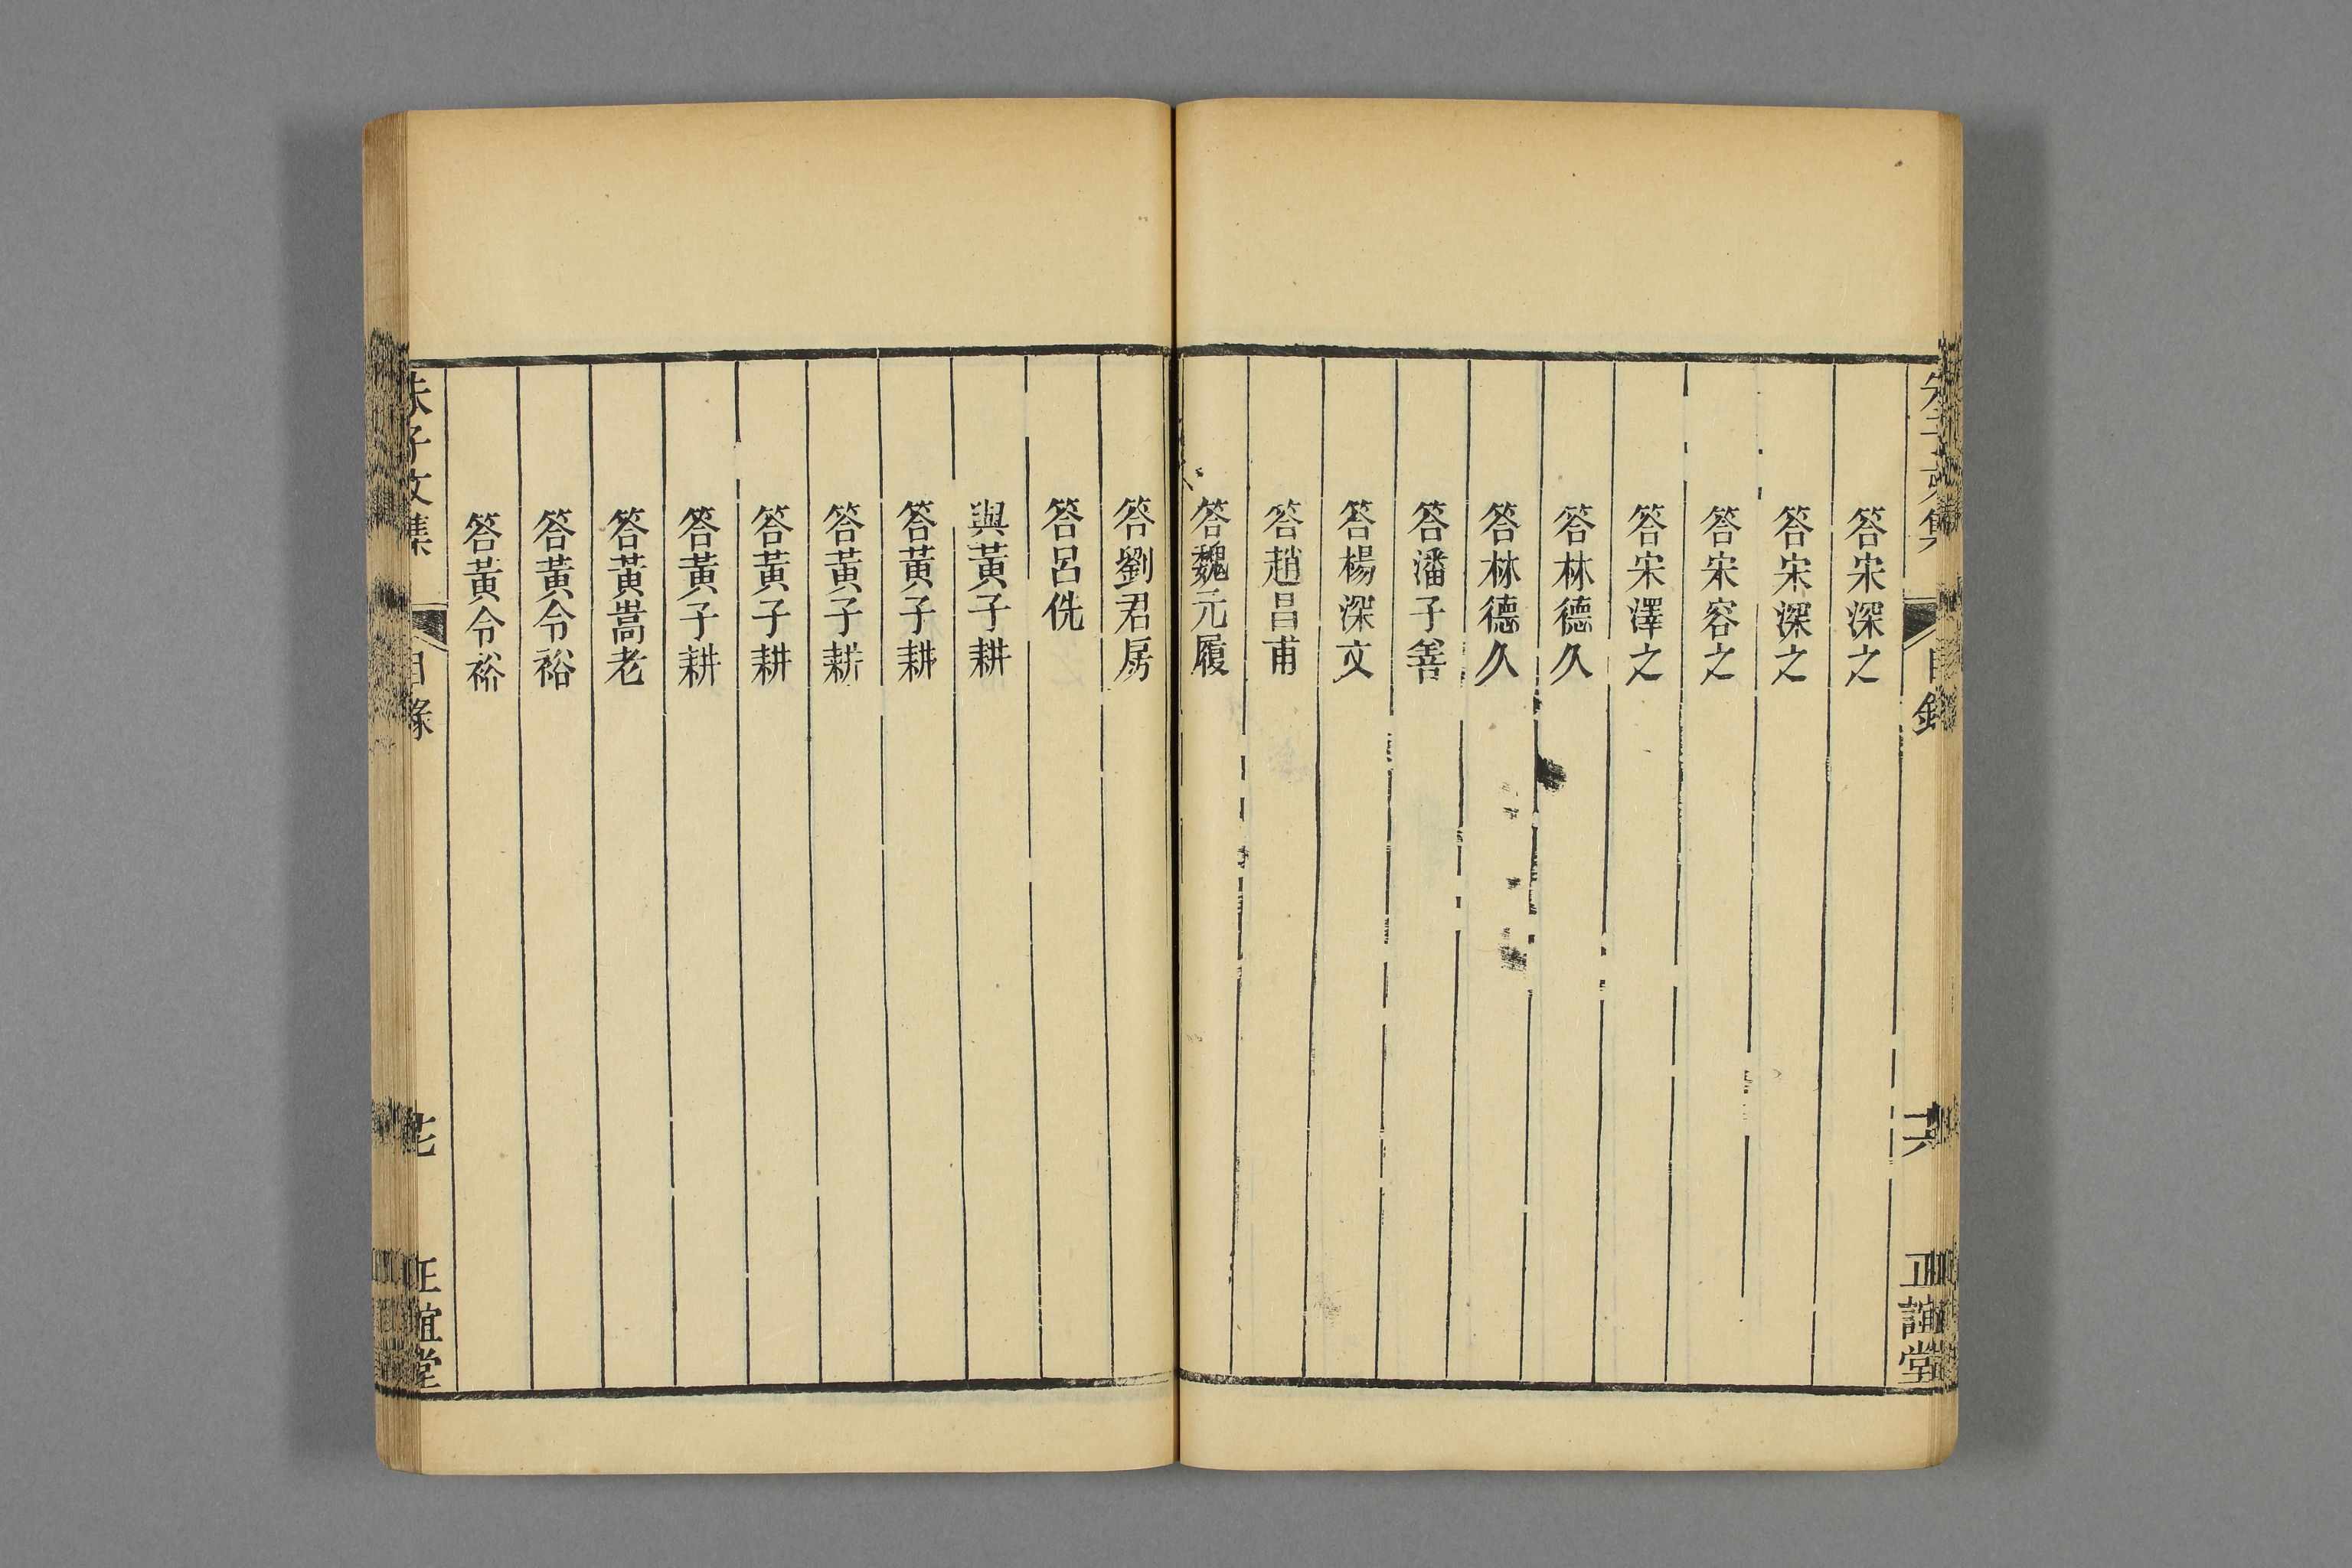 答宋深之
答宋深之
答宋容之
答宋澤之
答林德久
答林德久
答潘子善
答楊深文
答趙昌甫
答魏元履
答劉君房
答呂侁
與黃子耕
答黃子耕
答黃子耕
答黃子耕
答黃子耕
答黃嵩老
答黃令裕
答黃令裕
朱子文集
目錄
正誼堂